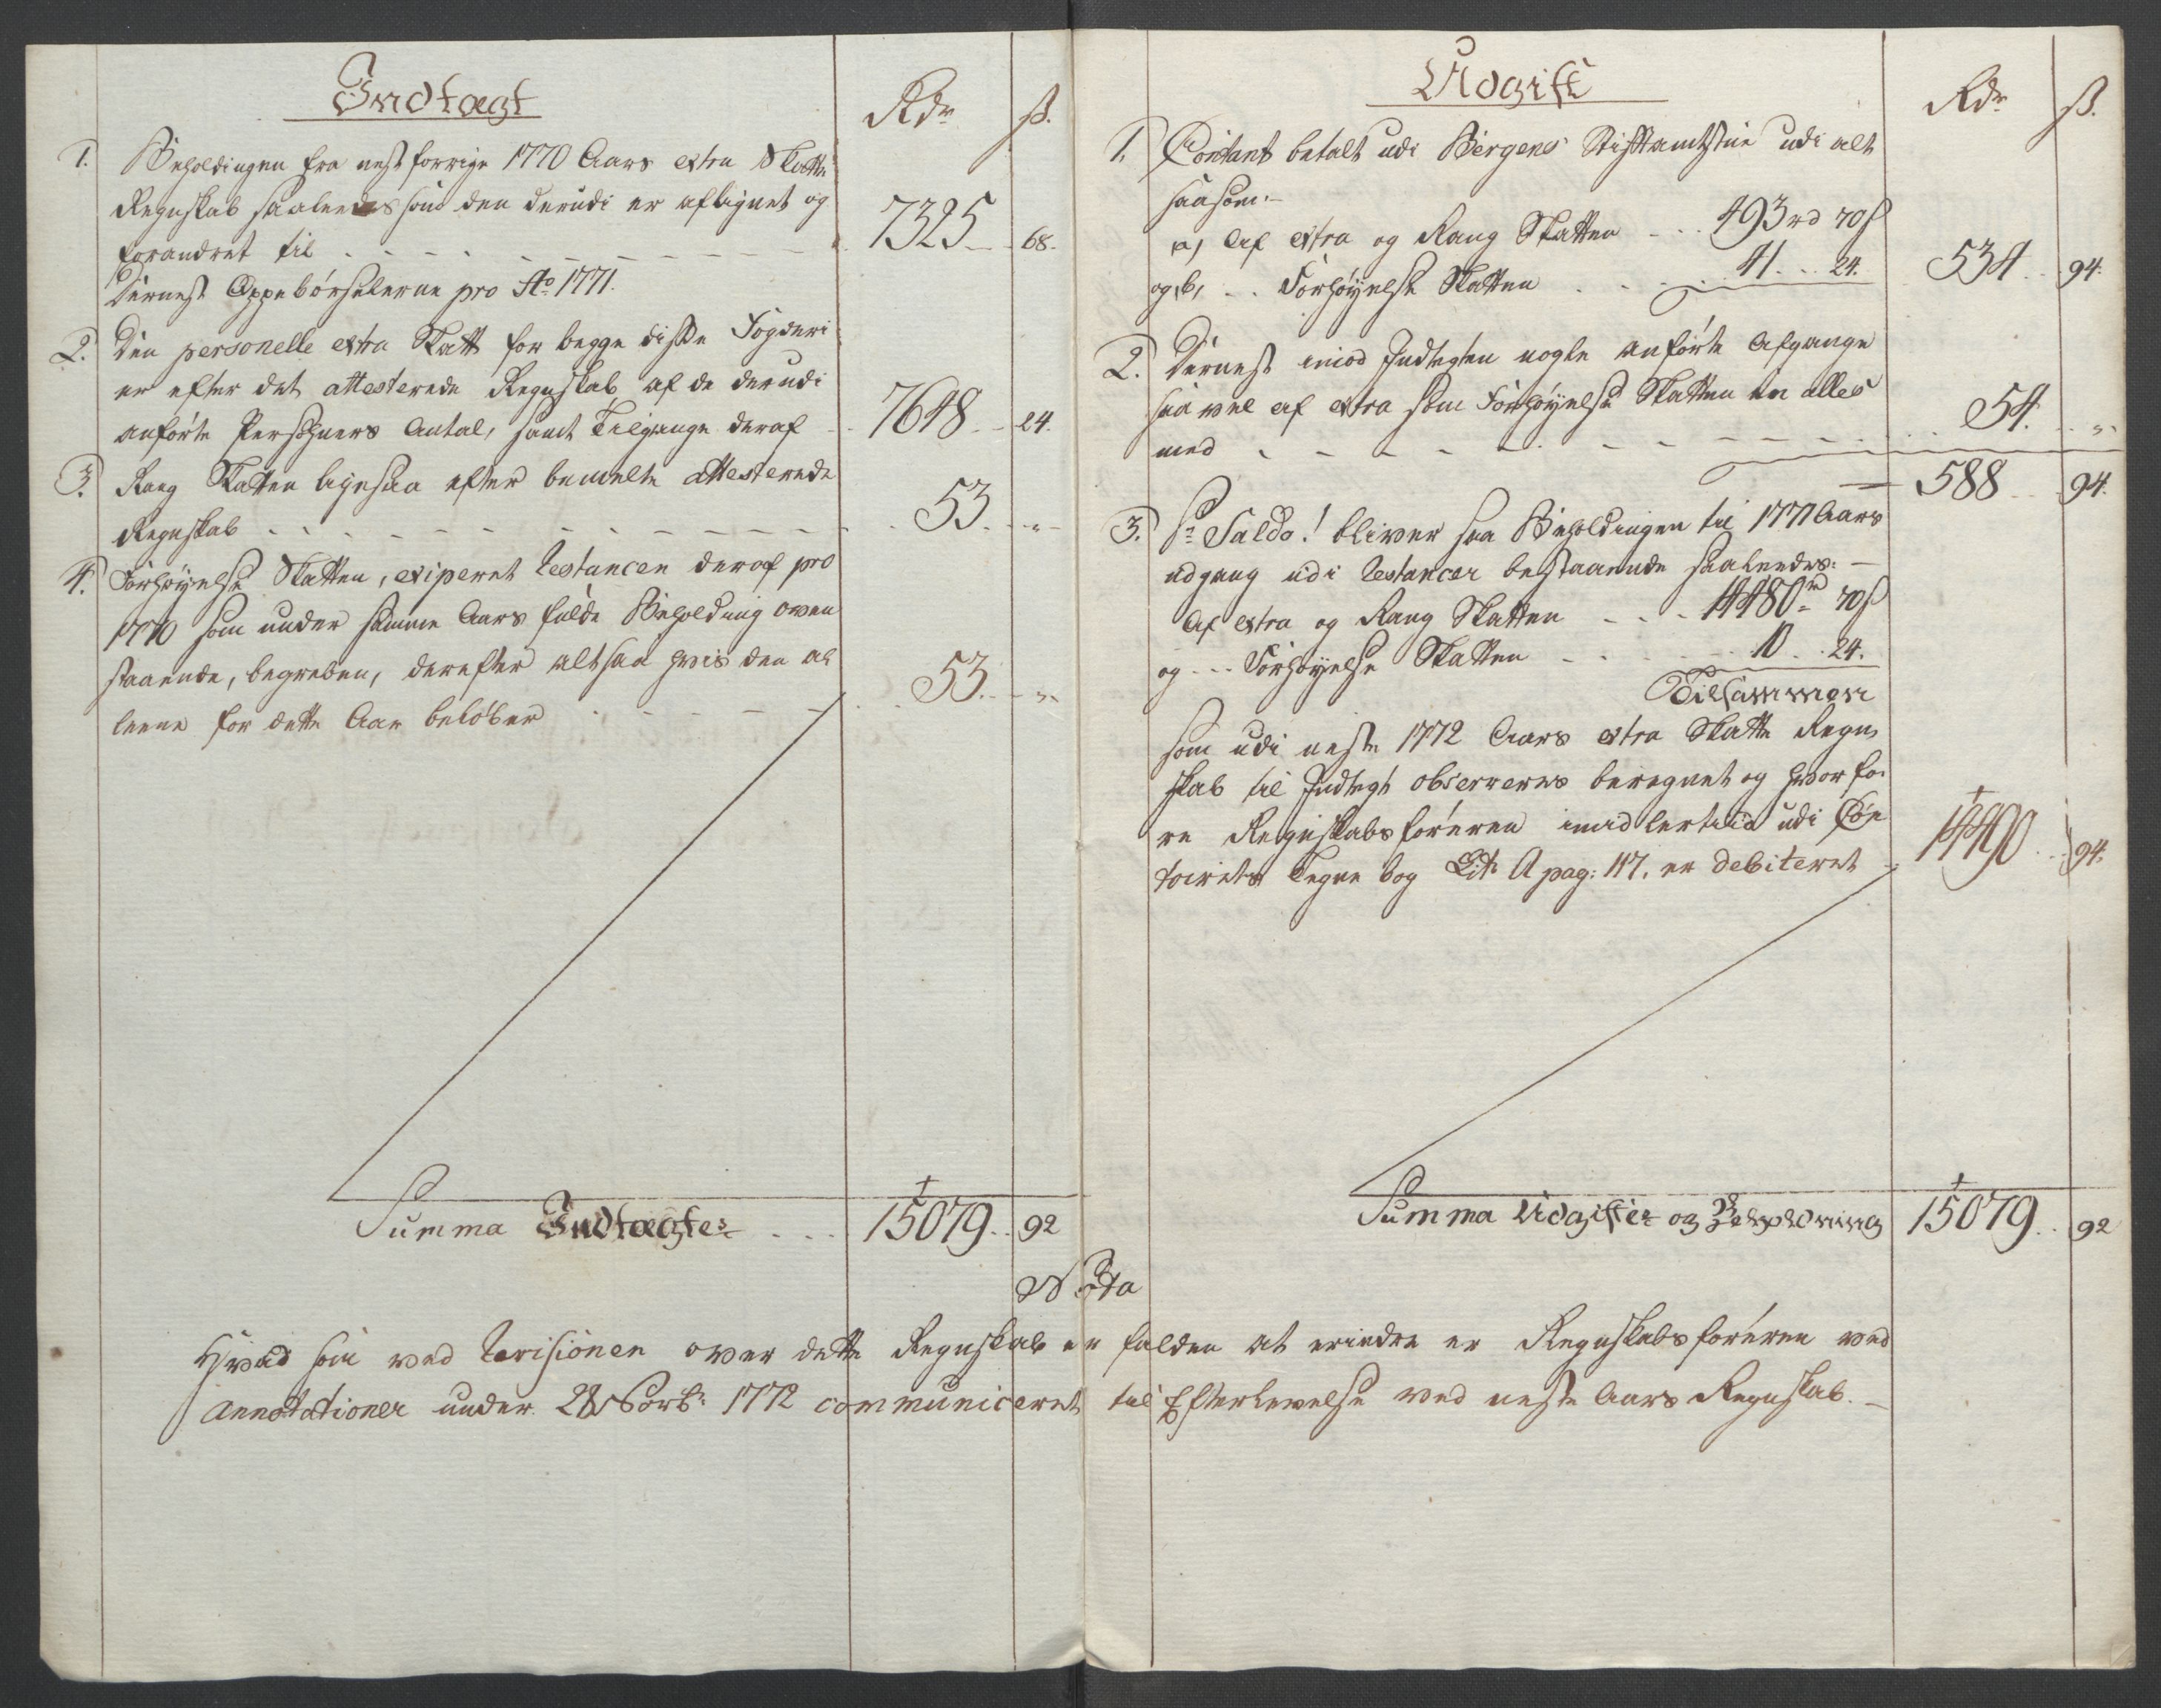 Indtægt
Rdr ß.
1. Beholdingen fra nest forrige 1770 Aars extra Skatte
Regnskab saaleedes som den derudi er aflignet og
forandret til 7325 68.
Dernest Oppebørselerne pro Ao 1771.
2. Den personelle extra Skatt for begge disse Fogderi
er efter det attesterede Regnskab af de derudi
anførte Persohners Antal, samt Tilgange deraf 7648 24.
3. Rang Skatten ligesaa efter bemelte attesterede
Regnskab 53. "
4. Forhøyelse Skatten, exiperet Restancen deraf pro
1770 som under samme Aars fulde Beholding oven
staaende, begreben, derefter altsaa hvis den al
leene for dette Aar beløber 53. "
Summa Indtægter 15079 92
Udgift
Rdr ß.
1. Contant betalt udi Bergens Stiftamtstue udi alt
saasom:
a) Af extra og Rang Skatten 493 rd 70 ß
og b, Forhøyelse Skatten 41 24. 534 94.
2. Dernest imod Indtegten nogle anførte Afgange
saa vel af extra som Forhøyelse Skatten in alles
med 54. "
588 94.
3. Pr Saldo! bliver saa Beholdingen til 1771 Aars
udgang udi Restancer bestaaende saaleedes:
Af extra og Rang Skatten 14480 rd 70 ß
og Forhøyelse Skatten 10 24.
Tilsammen
som udi neste 1772 Aars extra Skatte Regn
skab til Indtegt observeres beregnet og hvorfo
re Regnskabsføreren imidlertiid udi Con
toirets Tegne bog Litr A pag: 117. er debiteret 14490 94.
Summa Udgifter og Beholdning 15079 92
Nota
Hvad som ved Revisionen over dette Regnskab er falden at erindre er Regnskabsføreren ved
Annotationer under 28 Novbr: 1772 communiceret til Efterlevelse ved neste Aars Regnskab.